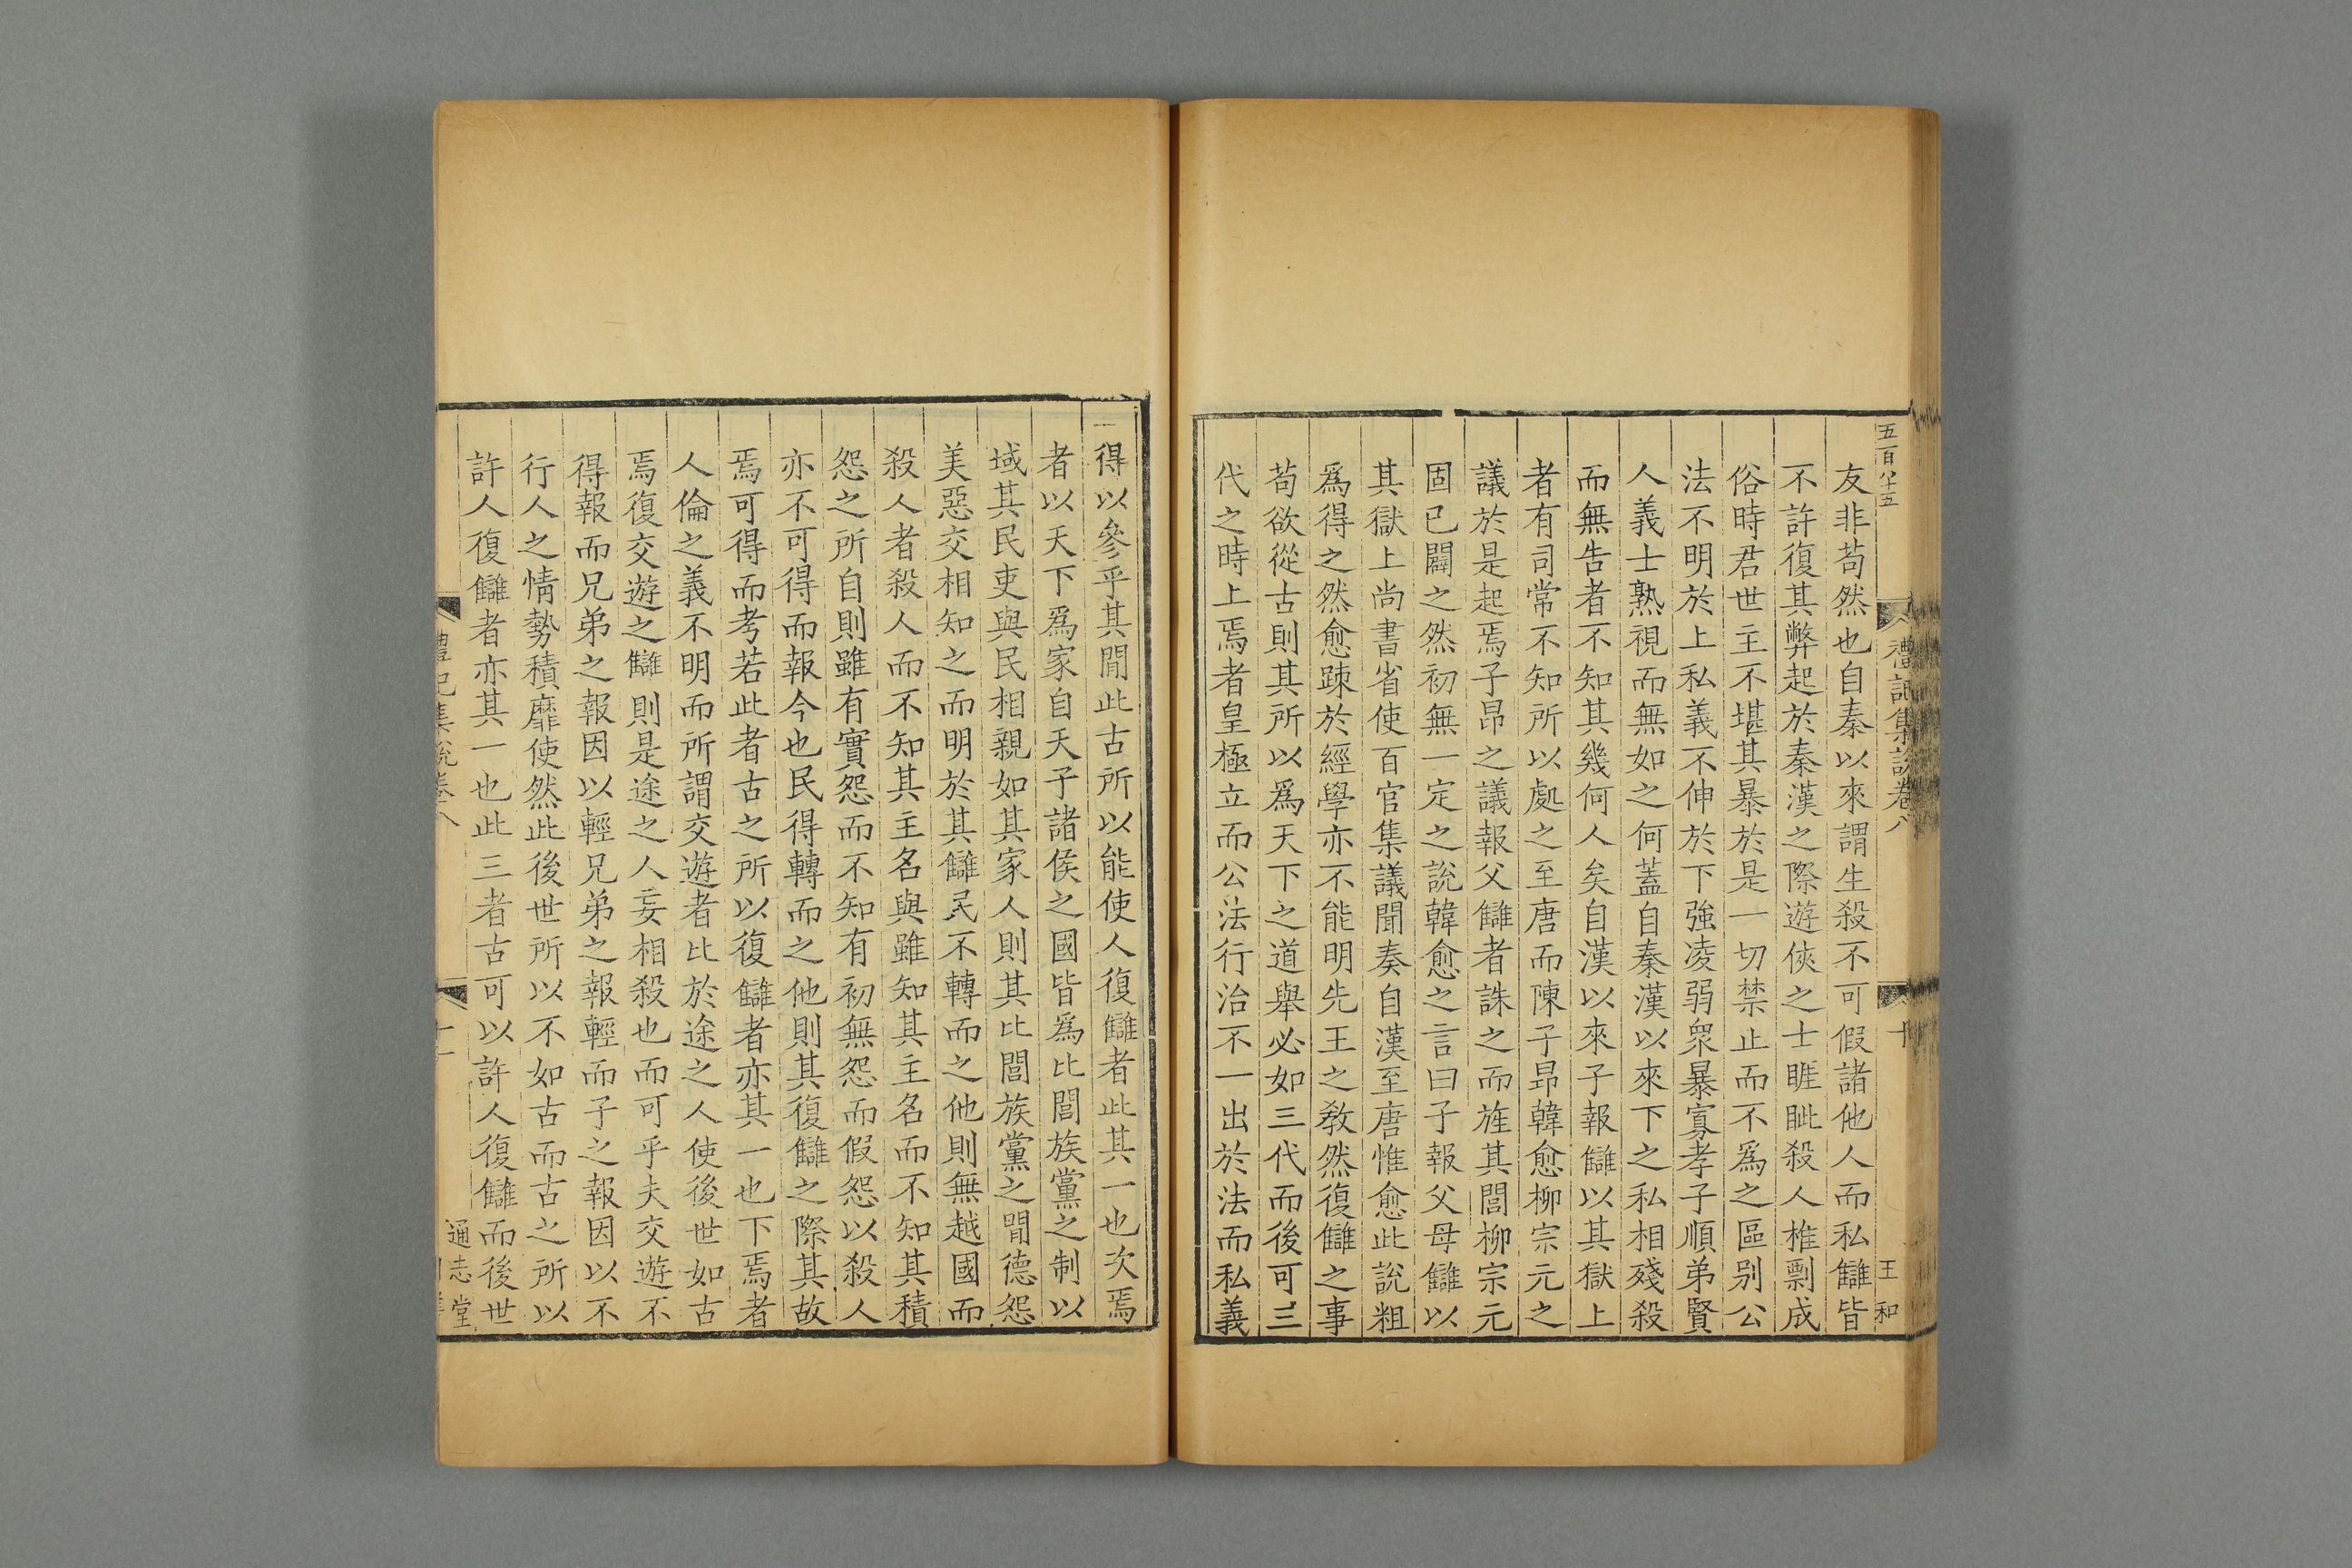 五百八十五
禮記集說卷八
十
王和
友非苟然也自秦以來謂生殺不可假諸他人而私讎皆
不許復其弊起於秦漢之際遊俠之士睚眦殺人椎剽成
俗時君世主不堪其暴於是一切禁止而不爲之區別公
法不明於上私義不伸於下強凌弱衆暴寡孝子順弟賢
人義士熟視而無如之何蓋自秦漢以來下之私相殘殺
而無告者不知其幾何人矣自漢以來子報讎以其獄上
者有司常不知所以處之至唐而陳子昻韓愈柳宗元之
議於是起焉子昻之議報父讎者誅之而旌其閭柳宗元
固已闢之然初無一定之說韓愈之言曰子報父母讎以
其獄上尚書省使百官集議聞奏自漢至唐惟愈此說粗
爲得之然愈踈於經學亦不能明先王之敎然復讎之事
苟欲從古則其所以爲天下之道舉必如三代而後可三
代之時上焉者皇極立而公法行治不一出於法而私義
得以參乎其閒此古所以能使人復讎者此其一也次焉
者以天下爲家自天子諸侯之國皆爲比閭族黨之制以
域其民吏與民相親如其家人則其比閭族黨之閒德怨
美惡交相知之而明於其讎民不轉而之他則無越國而
殺人者殺人而不知其主名與雖知其主名而不知其積
怨之所自則雖有實怨而不知有初無怨而假怨以殺人
亦不可得而報今也民得轉而之他則其復讎之際其故
焉可得而考若此者古之所以復讎者亦其一也下焉者
人倫之義不明而所謂交遊者比於途之人使後世如古
焉復交遊之讎則是途之人妄相殺也而可乎夫交遊不
得報而兄弟之報因以輕兄弟之報輕而子之報因以不
行人之情勢積靡使然此後世所以不如古而古之所以
許人復讎者亦其一也此三者古可以許人復讎而後世
禮記集說卷八
十一
通志堂